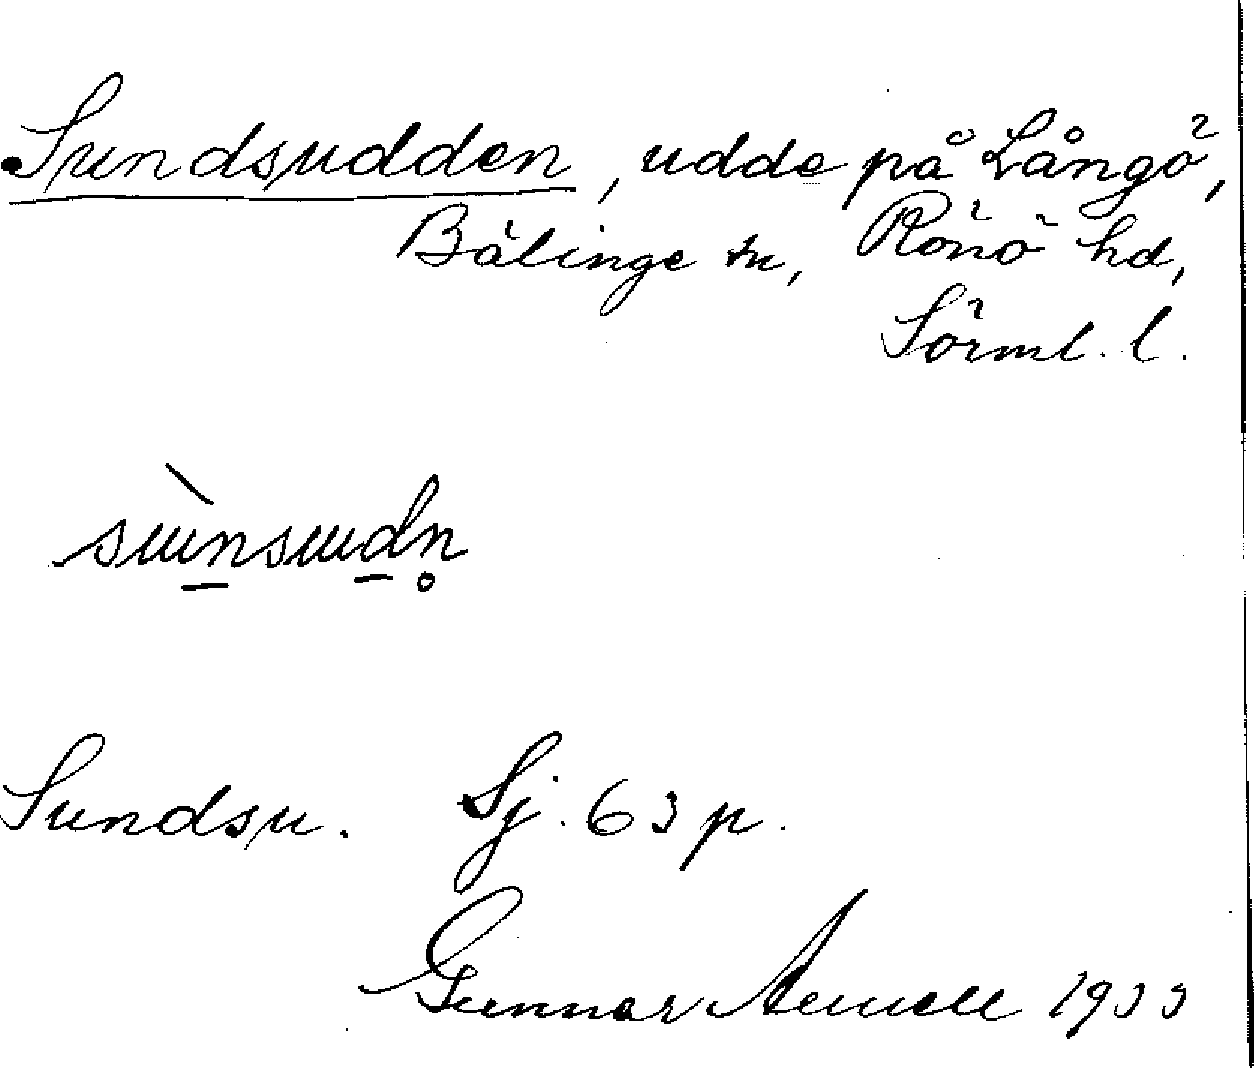 Sundsudden, udde på Långö,
Bälinge sn, Rönö hd,
Sörml. l.
Sundsu. Sj. 63 p.
Gunnar 1933